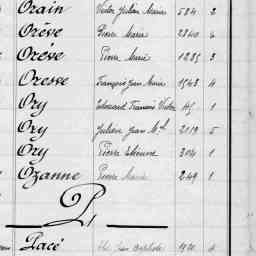 Orain Victor Julien Marie 584 3
Orève Pierre Marie 2340 4
Orève Pierre Marie 1285 3
Oresse François Jean Marie 1548 4
Ory Edouard François Victor 45 1
Ory Julien Jean Mie 2119 5
Ory Pierre Etienne 304 1
Ozanne Pierre Marie 249 1
P
Pacé Jean Baptiste